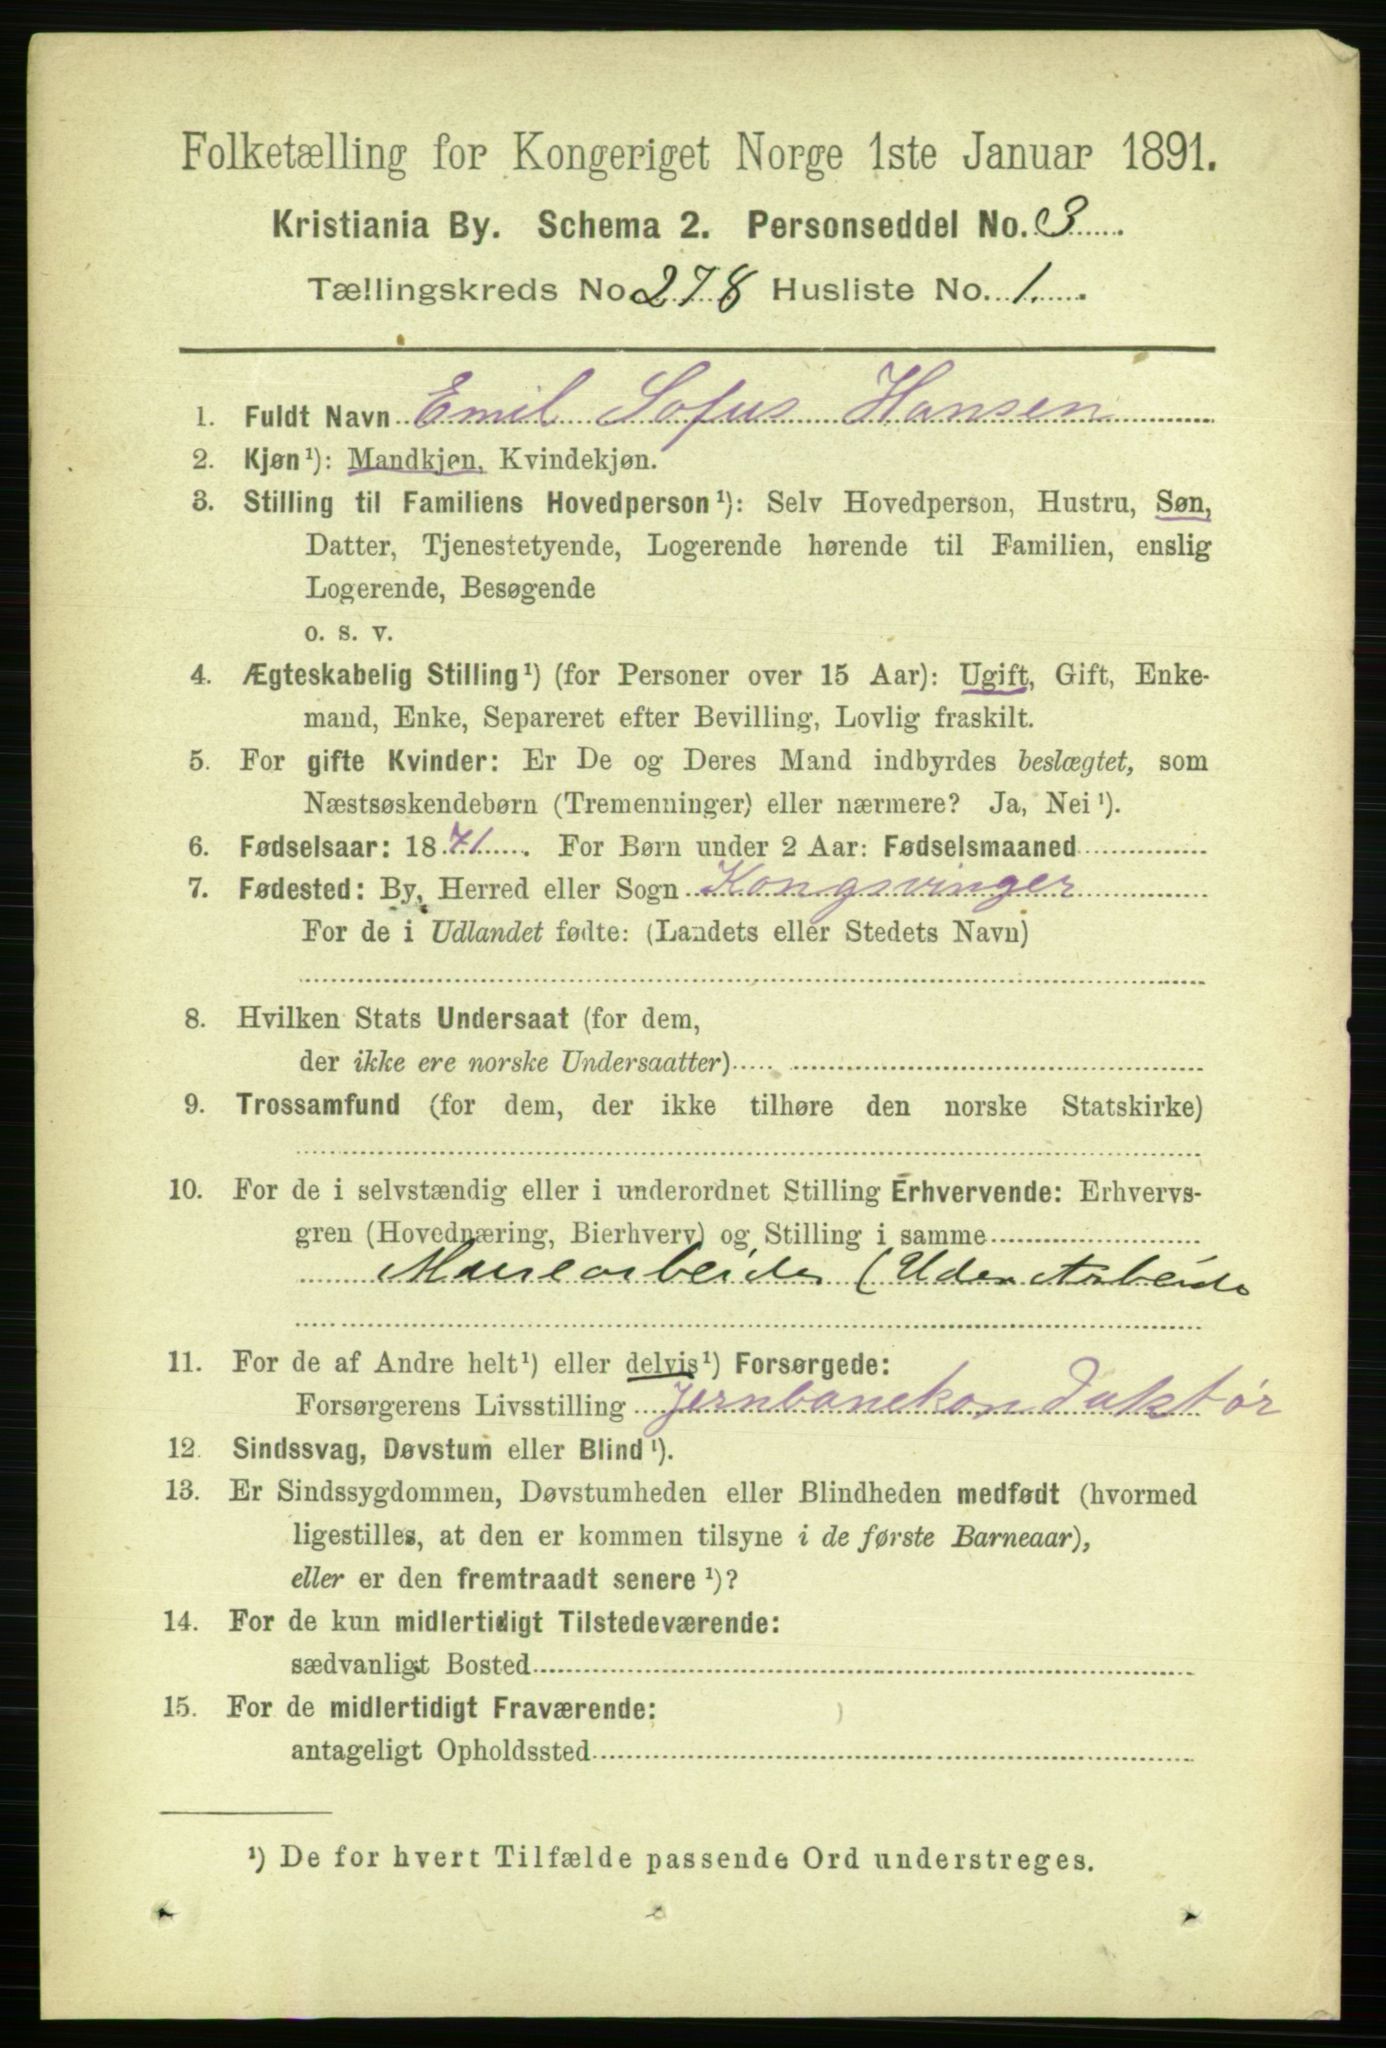 Folketælling for Kongeriget Norge 1ste Januar 1891.
Kristiania By. Schema 2. Personseddel No. 3
Tællingskreds No 278 Husliste No. 1.
1. Fuldt Navn Emil Sofus Hansen
2. Kjøn¹): Mandkjøn, Kvindekjøn.
3. Stilling til Familiens Hovedperson¹): Selv Hovedperson, Hustru, Søn,
Datter, Tjenestetyende, Logerende hørende til Familien, enslig
Logerende, Besøgende
o. s. v.
4. Ægteskabelig Stilling¹) (for Personer over 15 Aar): Ugift, Gift, Enke-
mand, Enke, Separeret efter Bevilling, Lovlig fraskilt.
5. For gifte Kvinder: Er De og Deres Mand indbyrdes beslægtet, som
Næstsøskendebørn (Tremenninger) eller nærmere? Ja, Nei¹).
6. Fødselsaar: 1871. For Børn under 2 Aar: Fødselsmaaned
7. Fødested: By, Herred eller Sogn Kongsvinger
For de i Udlandet fødte: (Landets eller Stedets Navn)
8. Hvilken Stats Undersaat (for dem,
der ikke ere norske Undersaatter)
9. Trossamfund (for dem, der ikke tilhøre den norske Statskirke)
10. For de i selvstændig eller i underordnet Stilling Erhvervende: Erhvervs-
gren (Hovednæring, Bierhverv) og Stilling i samme
Murearbeider (Uden Arbeide
11. For de af Andre helt¹) eller delvis¹) Forsørgede:
Forsørgerens Livsstilling Jernbanekonduktør
12. Sindssvag, Døvstum eller Blind¹).
13. Er Sindssygdommen, Døvstumheden eller Blindheden medfødt (hvormed
ligestilles, at den er kommen tilsyne i de første Barneaar),
eller er den fremtraadt senere¹)?
14. For de kun midlertidigt Tilstedeværende:
sædvanligt Bosted
15. For de midlertidigt Fraværende:
antageligt Opholdssted
¹) De for hvert Tilfælde passende Ord understreges.